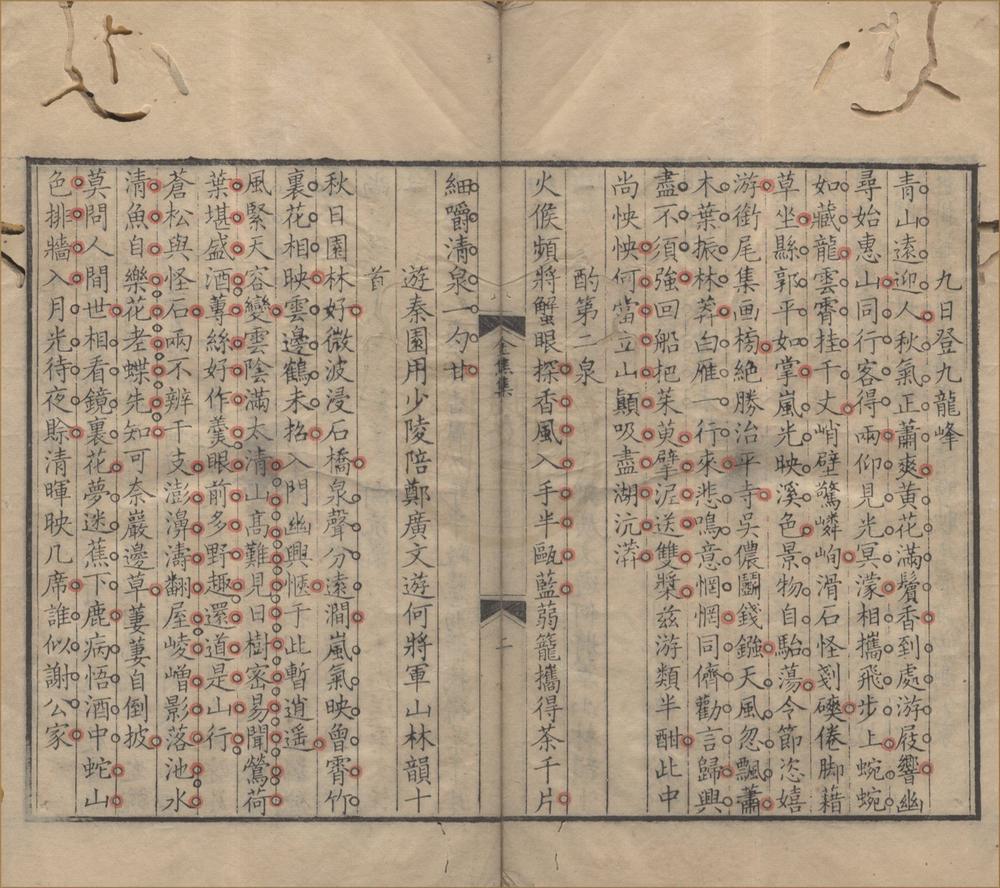 九日登九龍峰
青山遠迎人秋氣正蕭爽黄花滿鬢香到處游屐響幽
尋始惠山同行客得兩仰見光冥濛相攜飛步上蜿蜿
如藏龍雲霄挂千丈峭壁驚嶙峋滑石怪剗磢倦脚藉
草坐縣郭平如掌嵐光映溪色景物自駘蕩令節恣嬉
游銜尾集画榜絶勝治平寺吳儂鬭錢鏹天風忽飄蕭
木葉振林莽白雁一行來悲鳴意惘惘同儕勸言歸興
盡不須強回船把茱萸擘浞送雙槳兹游類半酣此中
尚怏怏何當立山顛吸盡湖沆漭
酌第二泉
火候頻將蟹眼探香風入手半甌藍蒻籠攜得茶千片
全集集
二
細嚼清泉一勺甘
遊秦園用少陵陪鄭廣文遊何將軍山林韻十
首
秋日園林好微波浸石橋泉聲分遠澗嵐氣映曾霄竹
裏花相映雲邊鶴未招入門幽興愜于此暫逍遥
風緊天容變雲陰滿太清山髙難見日樹密易聞鶯荷
葉堪盛酒蓴絲好作羹眼前多野趣還道是山行
蒼松與怪石兩不辨干支澎濞濤翻屋崚嶒影落池水
清魚自樂花老蝶先知可奈巖邊草萋萋自倒披
莫問人間世相看鏡裏花夢迷蕉下鹿病悟酒中蛇山
色排牆入月光待夜賒清暉映几席誰似謝公家